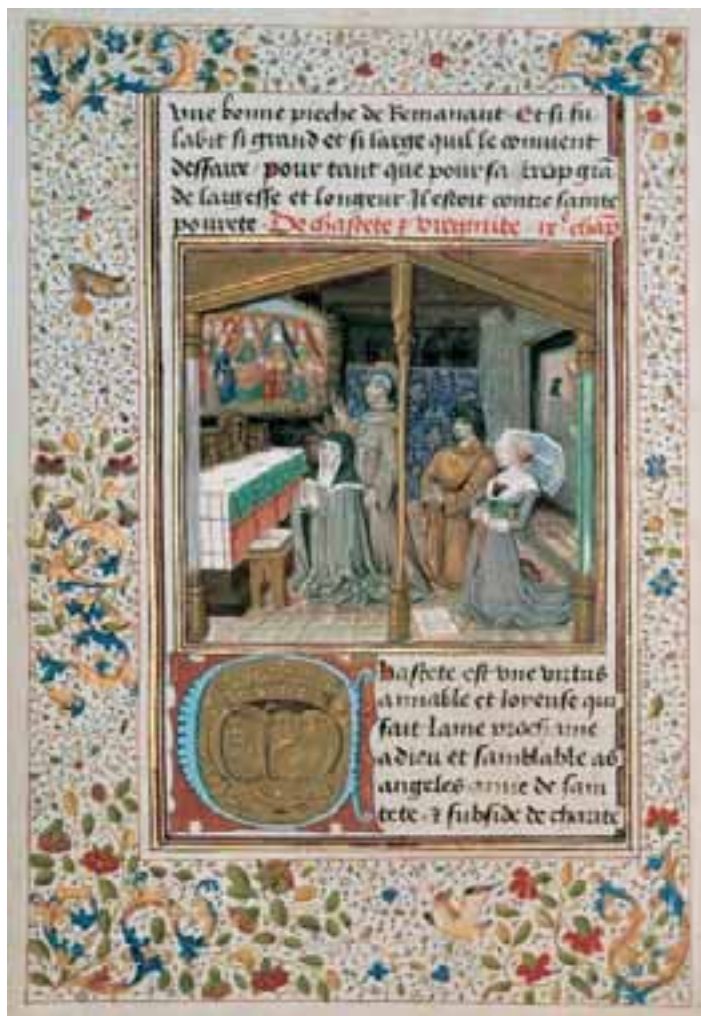 vne bonne pieche de Remanant. Et si fu
labit si grand et si large quil le conuient
deffaire / pour tant que pour sa trop grā
de largesse et longeur Il estoit contre sainte
pourete. De chastete & virginite ixᵉ chap̄
Chastete est vne virtus
amiable et loreuse qui
fait lame
a dieu et samblable as
angeles amie de sain
tete. & subside de charite